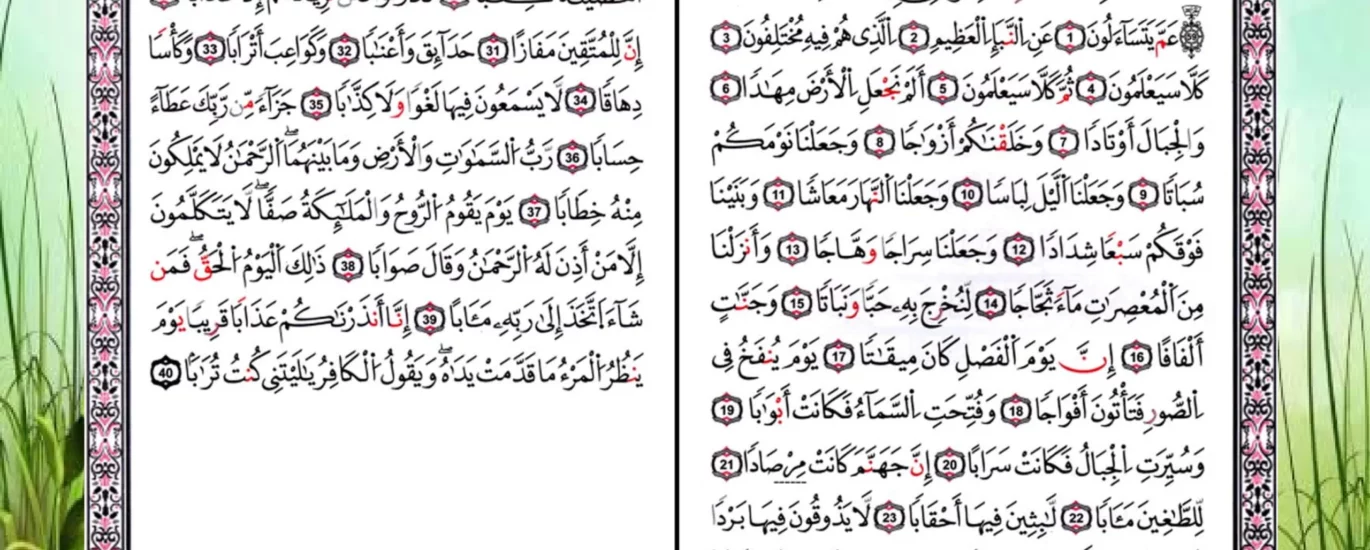 عَمَّ يَتَسَاءَلُونَ 1 عَنِ اِ۬لنَّبَإِ اِ۬لْعَظِيمِ 2 اِ۬لَّذِى هُمْ فِيهِ مُخْتَلِفُونَ 3
كَلَّا سَيَعْلَمُونَ 4 ثُمَّ كَلَّا سَيَعْلَمُونَ 5 أَلَمْ نَجْعَلِ اِ۬لْأَرْضَ مِهَٰدًا 6
وَالْجِبَالَ أَوْتَادًا 7 وَخَلَقْنَٰكُمْ أَزْوَٰجًا 8 وَجَعَلْنَا نَوْمَكُمْ
سُبَاتًا 9 وَجَعَلْنَا اَ۬لَّيْلَ لِبَاسًا 10 وَجَعَلْنَا اَ۬لنَّهَارَ مَعَاشًا 11 وَبَنَيْنَا
فَوْقَكُمْ سَبْعًا شِدَادًا 12 وَجَعَلْنَا سِرَاجًا وَهَّاجًا 13 وَأَنزَلْنَا
مِنَ اَ۬لْمُعْصِرَٰتِ مَآءً ثَجَّاجًا 14 لِّنُخْرِجَ بِهِۦ حَبًّا وَنَبَاتًا 15 وَجَنَّٰتٍ
أَلْفَافًا 16 إِنَّ يَوْمَ اَ۬لْفَصْلِ كَانَ مِيقَٰتًا 17 يَوْمَ يُنفَخُ فِى
اِ۬لصُّورِ فَتَأْتُونَ أَفْوَاجًا 18 وَفُتِّحَتِ اِ۬لسَّمَآءُ فَكَانَتْ أَبْوَٰبًا 19
وَسُيِّرَتِ اِ۬لْجِبَالُ فَكَانَتْ سَرَابًا 20 إِنَّ جَهَنَّمَ كَانَتْ مِرْصَادًا 21
لِّلطَّٰغِينَ مَـَٔابًا 22 لَّٰبِثِينَ فِيهَا أَحْقَابًا 23 لَّا يَذُوقُونَ فِيهَا بَرْدًا
إِنَّ لِلْمُتَّقِينَ مَفَازًا 31 حَدَآئِقَ وَأَعْنَٰبًا 32 وَكَوَاعِبَ أَتْرَابًا 33 وَكَأْسًا
دِهَاقًا 34 لَّا يَسْمَعُونَ فِيهَا لَغْوًا وَلَا كِذَّٰبًا 35 جَزَآءً مِّن رَّبِّكَ عَطَآءً
حِسَابًا 36 رَّبُّ اُ۬لسَّمَٰوَٰتِ وَالْأَرْضِ وَمَا بَيْنَهُمَا اَ۬لرَّحْمَٰنُ لَا يَمْلِكُونَ
مِنْهُ خِطَابًا 37 يَوْمَ يَقُومُ اُ۬لرُّوحُ وَالْمَلَٰٓئِكَةُ صَفًّا لَّا يَتَكَلَّمُونَ
إِلَّا مَنْ أَذِنَ لَهُ اُ۬لرَّحْمَٰنُ وَقَالَ صَوَابًا 38 ذَٰلِكَ اَ۬لْيَوْمُ اُ۬لْحَقُّ فَمَن
شَآءَ اَ۪تَّخَذَ إِلَىٰ رَبِّهِۦ مَـَٔابًا 39 إِنَّا أَنذَرْنَٰكُمْ عَذَابًا قَرِيبًا يَوْمَ
يَنظُرُ اُ۬لْمَرْءُ مَا قَدَّمَتْ يَدَاهُ وَيَقُولُ اُ۬لْكَافِرُ يَٰلَيْتَنِى كُنتُ تُرَٰبًا 40